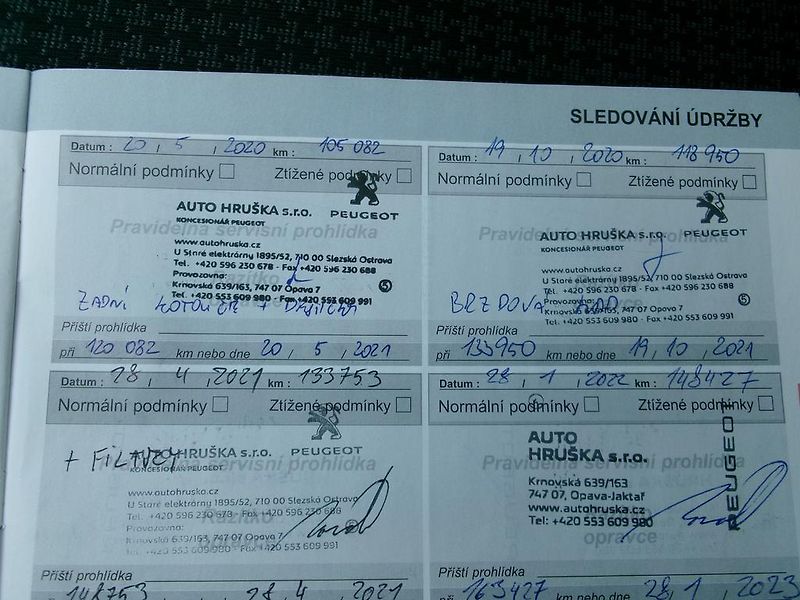 SLEDOVÁNÍ ÚDRŽBY
Datum : 20 / 5 / 2020 km : 105 082
Normální podmínky Ztížené podmínky
AUTO HRUŠKA s.r.o. PEUGEOT
KONCESIONÁŘ PEUGEOT
Pravidelná servisní prohlídka
www.autohruska.cz
U Staré elektrárny 1895/52, 710 00 Slezská Ostrava
Tel. +420 596 230 678 - Fax +420 596 230 688
Provozovna:
Krnovská 639/163, 747 07 Opava 7
Tel. +420 553 609 980 - Fax +420 553 609 991
5
ZADNÍ KOTOUČE +
Příští prohlídka
při 120 082 km nebo dne 20 / 5 / 2021
Datum : 19 / 10 / 2020 km : 118 950
Normální podmínky Ztížené podmínky
AUTO HRUŠKA s.r.o. PEUGEOT
KONCESIONÁŘ PEUGEOT
Pravidelná servisní prohlídka
www.autohruska.cz
U Staré elektrárny 1895/52, 710 00 Slezská Ostrava
Tel. +420 596 230 678 - Fax +420 596 230 688
Provozovna:
Krnovská 639/163, 747 07 Opava 7
Tel. +420 553 609 980 - Fax +420 553 609 991
5
BRZDOVÁ
Příští prohlídka
při 133950 km nebo dne 19 / 10 / 2021
Datum : 28 / 4 / 2021 km : 133753
Normální podmínky Ztížené podmínky
AUTO HRUŠKA s.r.o. PEUGEOT
KONCESIONÁŘ PEUGEOT
Pravidelná servisní prohlídka
+
www.autohruska.cz
U Staré elektrárny 1895/52, 710 00 Slezská Ostrava
Tel. +420 596 230 678 - Fax +420 596 230 688
Provozovna:
Krnovská 639/163, 747 07 Opava 7
Tel. +420 553 609 980 - Fax +420 553 609 991
Razítko
Příští prohlídka
148753 28 4 2021
Datum : 28 / 1 / 2022 km : 148427
Normální podmínky Ztížené podmínky
AUTO
HRUŠKA s.r.o.
PEUGEOT
Pravidelná servisní prohlídka
Krnovská 639/163
747 07, Opava-Jaktař
www.autohruska.cz
Tel: +420 553 609 980
opravce
Příští prohlídka
při 163427 km nebo dne 28 / 1 / 2023